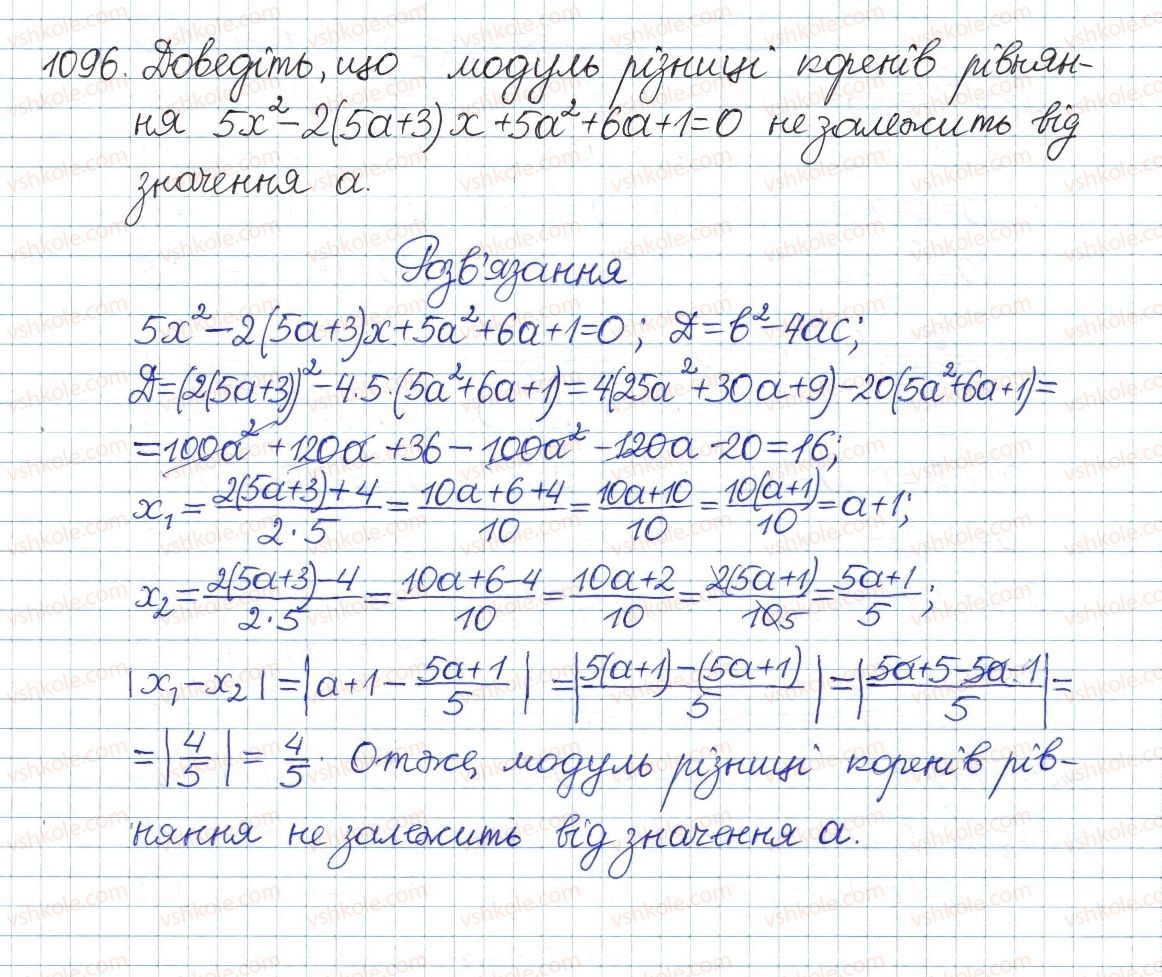 1096. Доведіть, що модуль різниці коренів рівнян-
ня 5x²-2(5a+3)x+5a²+6a+1=0 не залежить від
значення a.
Розв'язання
5x²-2(5a+3)x+5a²+6a+1=0; D=b²-4ac;
D=(2(5a+3))²-4·5·(5a²+6a+1)=4(25a²+30a+9)-20(5a²+6a+1)=
=100a²+120a+36-100a²-120a-20=16;
x₁=(2(5a+3)+4)/(2·5)=(10a+6+4)/10=(10a+10)/10=(10(a+1))/10=a+1;
x₂=(2(5a+3)-4)/(2·5)=(10a+6-4)/10=(10a+2)/10=(2(5a+1))/(10 5)=(5a+1)/5;
|x₁-x₂|=|a+1-(5a+1)/5|=|(5(a+1)-(5a+1))/5|=|(5a+5-5a-1)/5|=
=|4/5|=4/5. Отже, модуль різниці коренів рів-
няння не залежить від значення a.